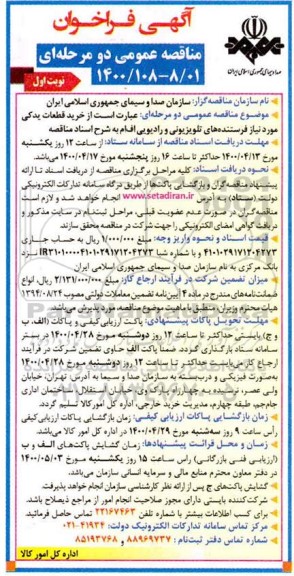 آگهی فراخوان
مناقصه عمومی دو مرحله‌ای
۱۴۰۰/۱۰۸-۸/۰۱
نوبت اول
صدا و سیمای جمهوری اسلامی ایران
نام سازمان مناقصه‌گزار: سازمان صدا و سیمای جمهوری اسلامی ایران
موضوع مناقصه عمومی دو مرحله‌ای: عبارت است از خرید قطعات یدکی
مورد نیاز فرستنده‌های تلویزیونی و رادیویی اف‌ام به شرح اسناد مناقصه
مهلت دریافت اسناد مناقصه از سامانه ستاد: از ساعت ۱۲ روز یکشنبه
مورخ ۱۴۰۰/۰۴/۱۳ حداکثر تا ساعت ۱۶ روز پنجشنبه مورخ ۱۴۰۰/۰۴/۱۷ می‌باشد.
نحوه دریافت اسناد: کلیه مراحل برگزاری مناقصه از دریافت اسناد تا ارائه
پیشنهاد مناقصه‌گران و بازگشایی پاکت‌ها از طریق درگاه سامانه تدارکات الکترونیکی
دولت (ستاد) به آدرس www.setadiran.ir انجام خواهد شد و لازم است
مناقصه‌گران در صورت عدم عضویت قبلی، مراحل ثبت‌نام در سایت مذکور و
دریافت گواهی امضای الکترونیکی را جهت شرکت در مناقصه محقق سازند.
قیمت اسناد و نحوه واریز وجه: مبلغ ۱/۰۰۰/۰۰۰ ریال به حساب جاری
۴۱۰۱۰۲۹۱۷۱۲۰۴۲۷۳ و با شماره شبا نزد
بانک مرکزی به نام سازمان صدا و سیمای جمهوری اسلامی ایران
میزان تضمین شرکت در فرآیند ارجاع کار: مبلغ ۲/۱۳۱/۰۰۰/۰۰۰ ریال، انواع
ضمانت‌نامه‌های مندرج در ماده ۴ آیین‌نامه تضمین معاملات دولتی مصوب ۱۳۹۴/۰۸/۲۴
هیأت محترم وزیران، منطبق با ماهیت موضوع مناقصه مورد پذیرش می‌باشد.
مهلت تحویل پاکات پیشنهادی: پاکت ارزیابی کیفی و پاکات (الف، ب
و ج) بایستی حداکثر تا ساعت ۱۲ روز دوشنبه مورخ ۱۴۰۰/۰۴/۲۸ در بستر
سامانه ستاد بارگذاری گردد. ضمناً پاکت الف حاوی تضمین شرکت در فرآیند
ارجاع کار بایستی حداکثر تا ساعت ۱۲ روز دوشنبه مورخ ۱۴۰۰/۰۴/۲۸
به‌صورت فیزیکی و دربسته به سازمان صدا و سیما به آدرس: تهران، خیابان
ولی عصر، نرسیده به چهارراه پارک‌وی، خیابان استقلال، ساختمان اداری
جام‌جم، طبقه چهارم، مدیریت خرید خارجی، اداره کل امور کالا تسلیم گردد.
زمان بازگشایی پاکات ارزیابی کیفی: زمان بازگشایی پاکات ارزیابی کیفی
رأس ساعت ۹ روز سه‌شنبه مورخ ۱۴۰۰/۰۴/۲۹ در اداره کل امور کالا می‌باشد.
زمان و محل قرائت پیشنهادها: زمان گشایش پاکت‌های الف و ب
(ارزیابی فنی بازرگانی) رأس ساعت ۱۵ روز یکشنبه مورخ ۱۴۰۰/۰۵/۰۳
در دفتر معاون محترم منابع مالی و سرمایه انسانی سازمان می‌باشد.
گشایش پاکت‌های ج پس از ارائه نظر کارشناسی سازمان انجام خواهد پذیرفت.
شرکت‌کننده بایستی دارای مجوز صلاحیت انجام امور از مراجع ذیصلاح باشد.
برای کسب اطلاعات بیشتر با شماره تلفن ۲۲۱۶۷۴۶۳ تماس حاصل فرمائید.
مرکز تماس سامانه تدارکات الکترونیک دولت: ۴۱۹۳۴-۰۲۱
شماره تماس دفتر ثبت‌نام: ۸۸۹۶۹۷۳۷ و ۸۵۱۹۳۷۶۸
اداره کل امور کالا